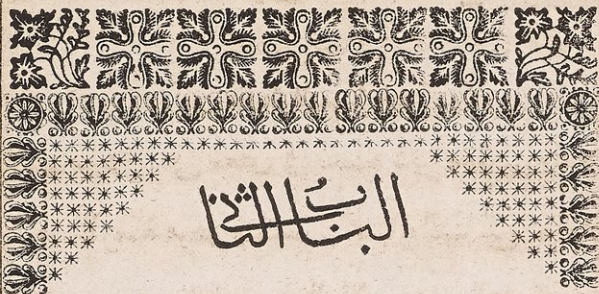 الباب الثاني